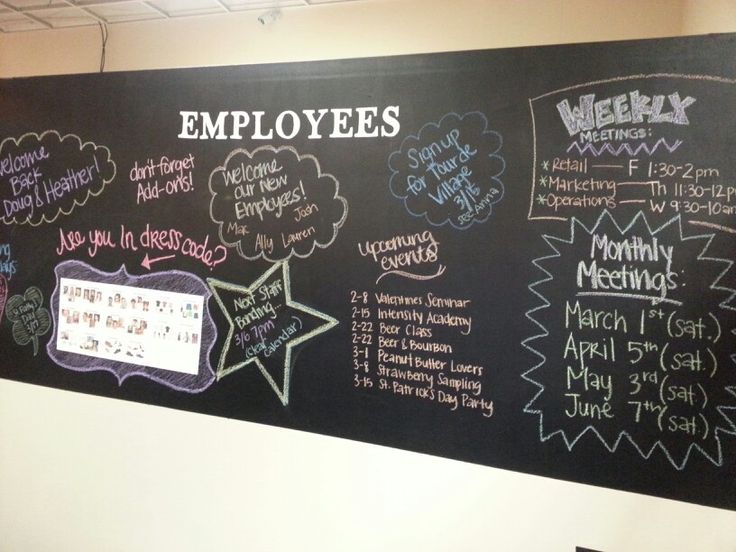 EMPLOYEES
Welcome
Back
Doug & Heather!
don't forget
Add-ons!
Welcome
our New
Employees!
Mac Josh
Ally Lauren
Sign up
for Tour de
Village
3/15
see: Anna
WEEKLY
MEETINGS:
*Retail — F 1:30-2pm
*Marketing — Th 11:30-12p
*Operations — W 9:30-10am
Are you In dress code?
Next Staff
Bonding
3/6 7pm
Calendar)
upcoming
events
2-8 Valentines Seminar
2-15 Intensity Academy
2-22 Beer Class
2-22 Beer & Bourbon
3-1 Peanut Butter Lovers
3-8 Strawberry Sampling
3-15 St. Patrick's Day Party
Monthly
Meetings:
March 1st (sat.)
April 5th (sat.)
May 3rd (sat.)
June 7th (sat.)